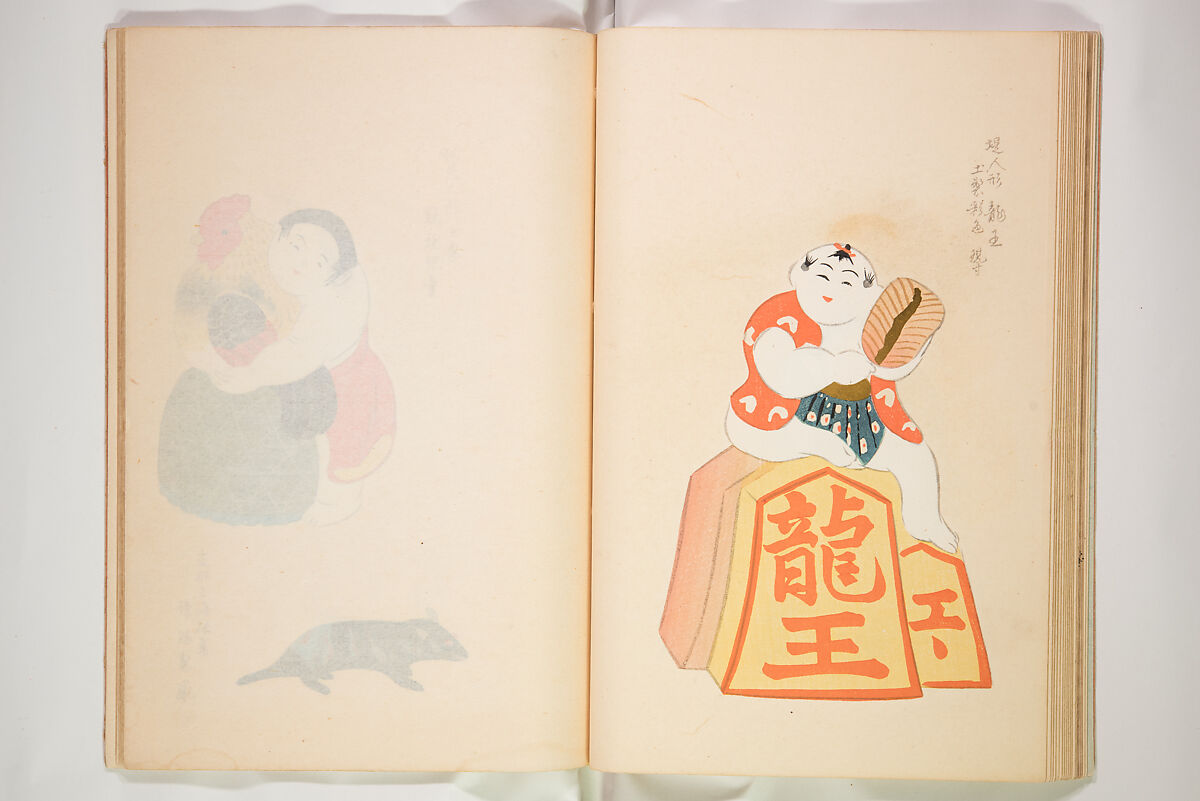 堤人形 龍王
土製彩色 現寸
龍王
王